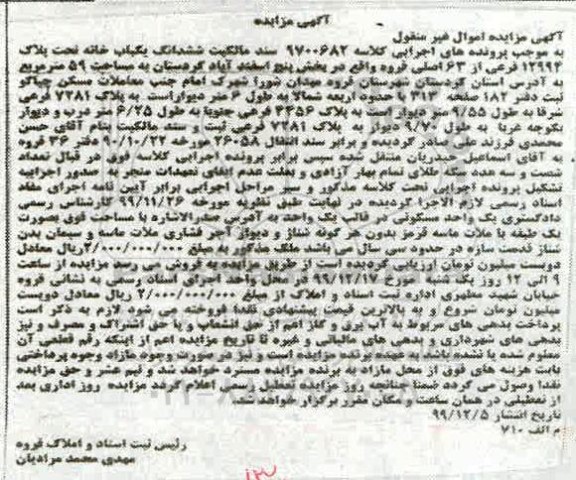 آگهی مزایده
آگهی مزایده اموال غیر منقول
به موجب پرونده های اجرایی کلاسه ۹۷۰۰۶۸۲ سند مالکیت ششدانگ یکباب خانه تحت پلاک
۱۲۹۹۴ فرعی از ۶۳ اصلی قروه واقع در بخش پنج اسفند آباد کردستان به مساحت ۵۹ مترمربع
به آدرس استان کردستان شهرستان قروه میدان شورا شهرک امام جنب معاملات مسکن چپاکو
ثبت دفتر ۱۸۲ صفحه ۳۱۳ با حدود اربعه شمالا به طول ۶ متر دیواراست به پلاک ۷۲۸۱ فرعی
شرقا به طول ۹/۵۵ متر دیوار است به پلاک ۳۴۵۶ فرعی جنوبا به طول ۶/۲۵ متر درب و دیوار
بکوچه غربا به طول ۹/۷۰ دیوار به پلاک ۷۲۸۱ فرعی ثبت و سند مالکیت بنام آقای حسن
محمدی فرزند علی صادر گردیده و برابر سند انتقال ۲۶۰۵۸ مورخه ۹۰/۱۰/۲۲ دفتر ۳۶ قروه
به آقای اسماعیل حیدریان منتقل شده سپس برابر پرونده اجرایی کلاسه فوق در قبال تعداد
شصت و سه عدد سکه طلای تمام بهار آزادی و بعلت عدم ایفای تعهدات منجر به صدور اجراییه
تشکیل پرونده اجرایی تحت کلاسه مذکور و سیر مراحل اجرایی برابر آیین نامه اجرای مفاد
اسناد رسمی لازم الاجرا گردیده در نهایت طبق نظریه مورخه ۹۹/۱۱/۲۶ کارشناس رسمی
دادگستری یک واحد مسکونی در قالب یک واحد به آدرس صدرالاشاره با مساحت فوق بصورت
یک طبقه با ملات ماسه قرمز بدون هر گونه شناژ و دیوار آجر فشاری ملات ماسه و سیمان بدن
شناژ قدمت سازه در حدود سی سال می باشد ملک مذکور به مبلغ ۲/۰۰۰/۰۰۰/۰۰۰ریال معادل
دویست میلیون تومان ارزیابی گردیده است از طریق مزایده به فروش می رسد مزایده از ساعت
۹ الی ۱۲ روز یک شنبه مورخ ۹۹/۱۲/۱۷ در محل واحد اجرای اسناد رسمی به نشانی قروه
خیابان شهید مطهری اداره ثبت اسناد و املاک از مبلغ ۲/۰۰۰/۰۰۰/۰۰۰ ریال معادل دویست
میلیون تومان شروع و به بالاترین قیمت پیشنهادی نقدا فروخته می شود لازم به ذکر است
پرداخت بدهی های مربوط به آب برق و گاز اعم از حق انشعاب و یا حق اشتراک و مصرف و نیز
بدهی های شهرداری و بدهی های مالیاتی و غیره تا تاریخ مزایده اعم از اینکه رقم قطعی آن
معلوم شده یا نشده باشد به عهده برنده مزایده است و نیز در صورت وجود مازاد وجوه پرداختی
بابت هزینه های فوق از محل مازاد به برنده مزایده مسترد خواهد شد و نیم عشر و حق مزایده
نقدا وصول می گردد ضمنا چنانچه روز مزایده تعطیل رسمی اعلام گردد مزایده روز اداری بعد
از تعطیلی در همان ساعت و مکان مقرر برگزار خواهد شد.
تاریخ انتشار ۹۹/۱۲/۵
م الف ۷۱۰
رئیس ثبت اسناد و املاک قروه
مهدی محمد مرادیان